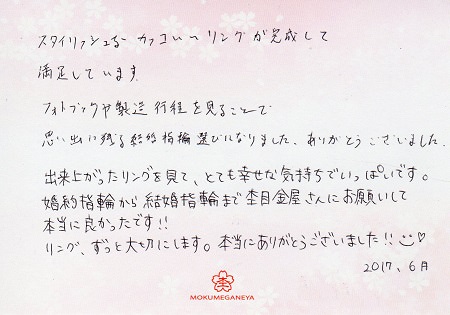 スタイリッシュなカッコいいリングが完成して
満足しています
フォトブックや製造行程を見ることで
思い出に残る結婚指輪選びになりました、ありがとうございました。
出来上がったリングを見て、とても幸せな気持ちでいっぱいです。
婚約指輪から結婚指輪まで杢目金屋さんにお願いして
本当に良かったです!!
リング、ずっと大切にします。本当にありがとうございました!!
2017、6月
杢
MOKUMEGANEYA